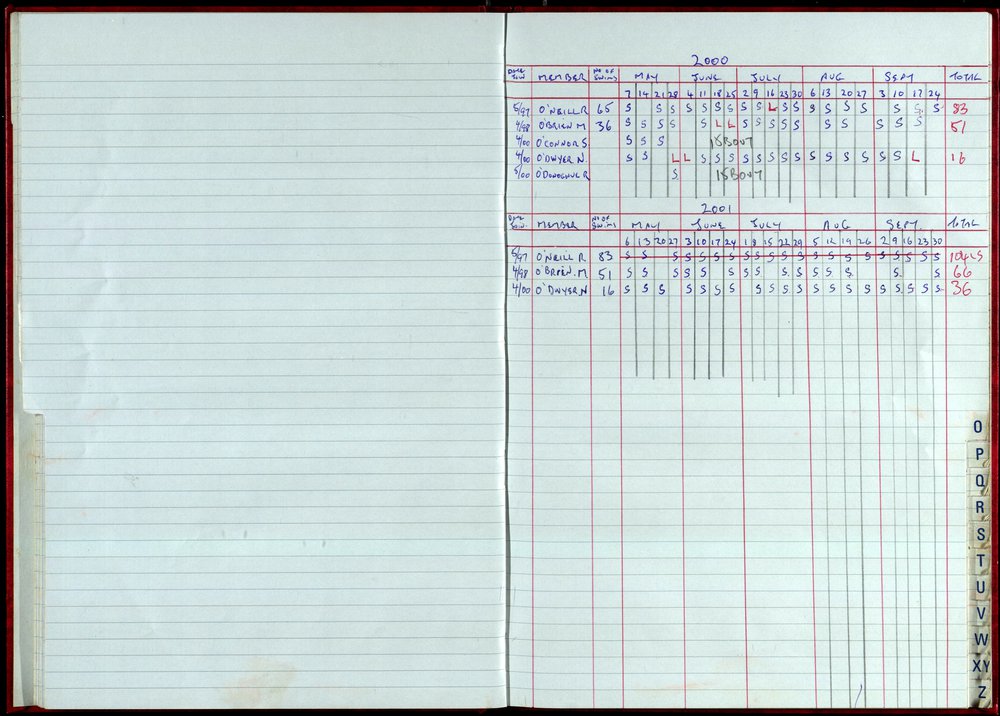 2000
DATE JOIN MEMBER NO OF SWIMS MAY JUNE JULY AUG SEPT TOTAL
7 14 21 28 4 11 18 25 2 9 16 23 30 6 13 20 27 3 10 17 24
5/97 O'NEILL R 65 S S S S S S S S S L S S S S S S S S S 83
4/98 O'BRIEN M 36 S S S S S L L S S S S S S S S S S 51
4/00 O'CONNOR S. S S S 15 BOUT
4/00 O'DWYER N. S S L L S S S S S S S S S S S S S S S L 16
5/00 O'DONOGHUE R S 15 BOUT
2001
DATE JOIN MEMBER NO OF SWIMS MAY JUNE JULY AUG SEPT. TOTAL
6 13 20 27 3 10 17 24 1 8 15 22 29 5 12 19 26 2 9 16 23 30
5/97 O'NEILL R 83 S S S S S S S S S S S S S S S S S S S S S 104 LS
4/98 O'BRIEN. M 51 S S S S S S S S S S S S S S S 66
4/00 O'DWYER N 16 S S S S S S S S S S S S S S S S S S S S 36
O
P
Q
R
S
T
U
V
W
XY
Z